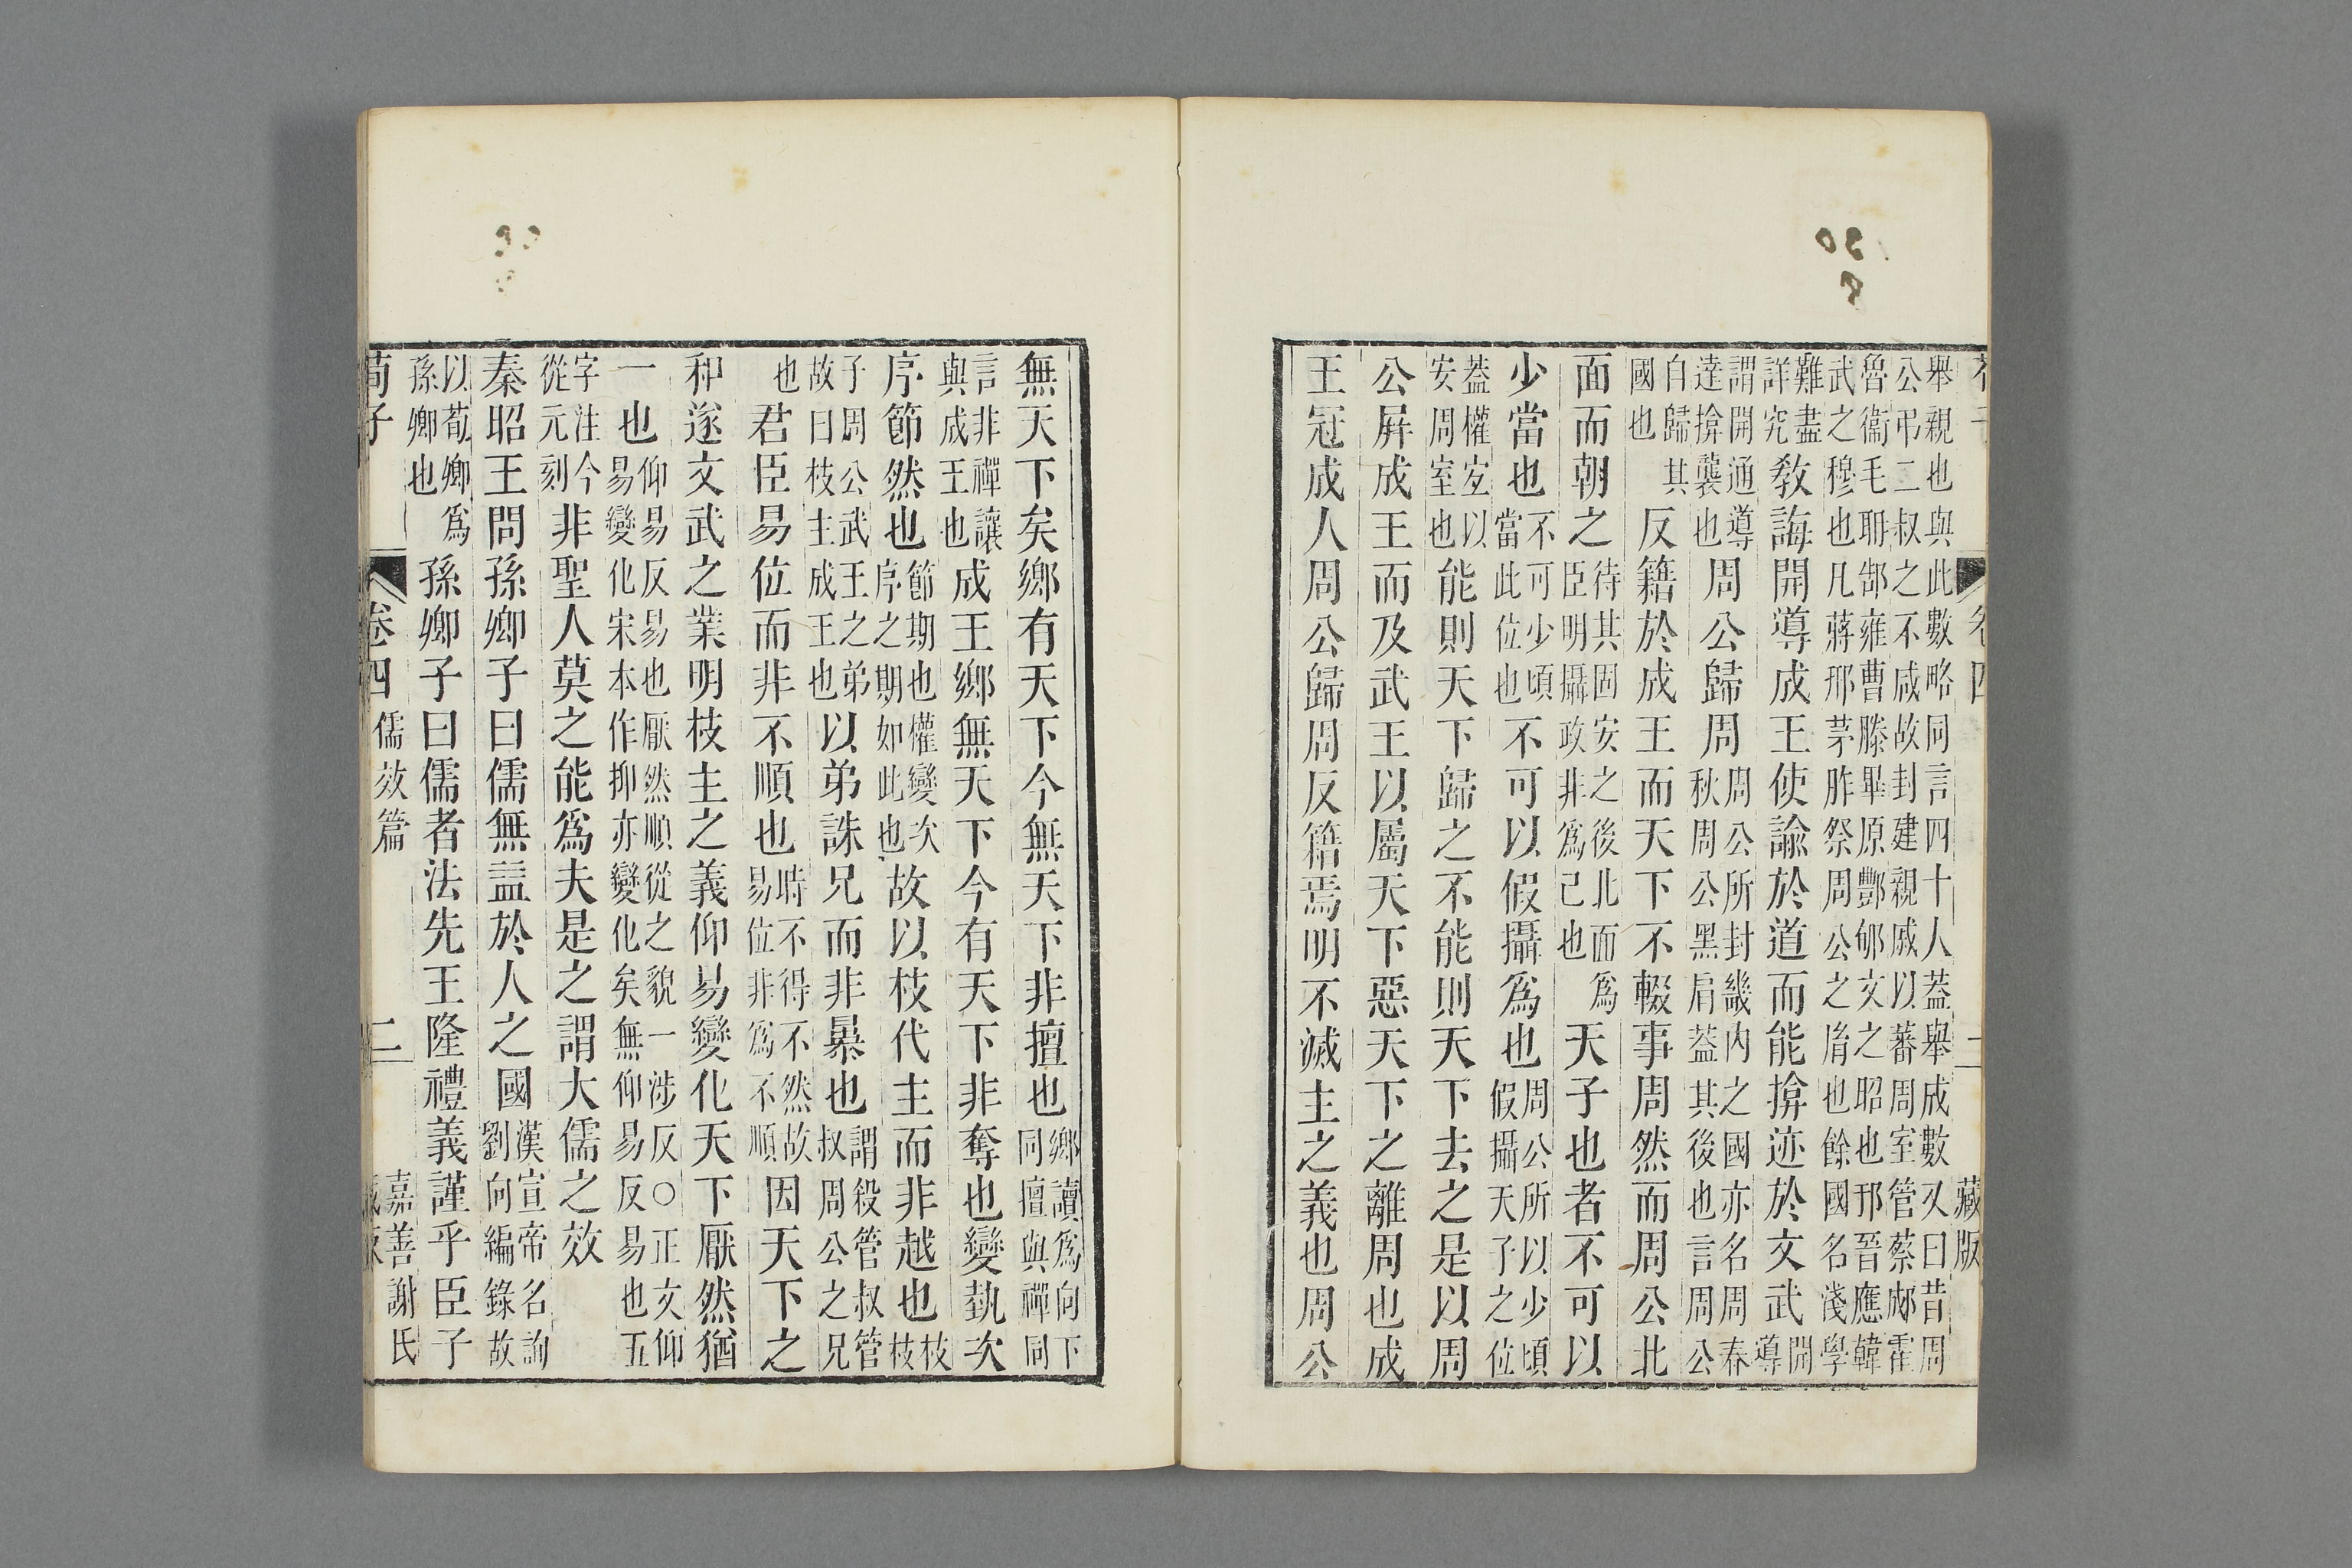 卷四 二 藏版
舉親也與此數略同言四十人蓋舉成數又曰昔周
公弔二叔之不咸故封建親戚以蕃周室管蔡郕霍
魯衞毛聃郜雍曹滕畢原酆郇文之昭也邘晉應韓
武之穆也凡蔣邢茅胙祭周公之胤也餘國名淺學
難盡詳究教誨開導成王使諭於道而能揜迹於文武開導
謂開通導達揜襲也周公歸周周公所封畿內之國亦名周春秋周公黑肩蓋其後也言周公
自歸其國也反籍於成王而天下不輟事周然而周公北
面而朝之待其固安之後北面爲臣明攝政非爲己也天子也者不可以
少當也不可少頃當此位也不可以假攝爲也周公所以少頃假攝天子之位
蓋權宐以安周室也能則天下歸之不能則天下去之是以周
公屏成王而及武王以屬天下惡天下之離周也成
王冠成人周公歸周反籍焉明不滅主之義也周公
無天下矣鄉有天下今無天下非擅也鄉讀爲向下同擅與禪同
言非禪讓與成王也成王鄉無天下今有天下非奪也變埶次
序節然也節期也權變次序之期如此也故以枝代主而非越也枝枝
子周公武王之弟故曰枝主成王也以弟誅兄而非暴也謂殺管叔管叔周公之兄
也君臣易位而非不順也時不得不然故易位非爲不順因天下之
和遂文武之業明枝主之義仰易變化天下厭然猶
一也仰易反易也厭然順從之貌一涉反○正文仰易變化宋本作抑亦變化矣無仰易反易也五
字注今從元刻非聖人莫之能爲夫是之謂大儒之效
秦昭王問孫卿子曰儒無益於人之國漢宣帝名詢劉向編錄故
以荀卿爲孫卿也孫卿子曰儒者法先王隆禮義謹乎臣子
荀子 卷四 儒效篇 二 嘉善謝氏